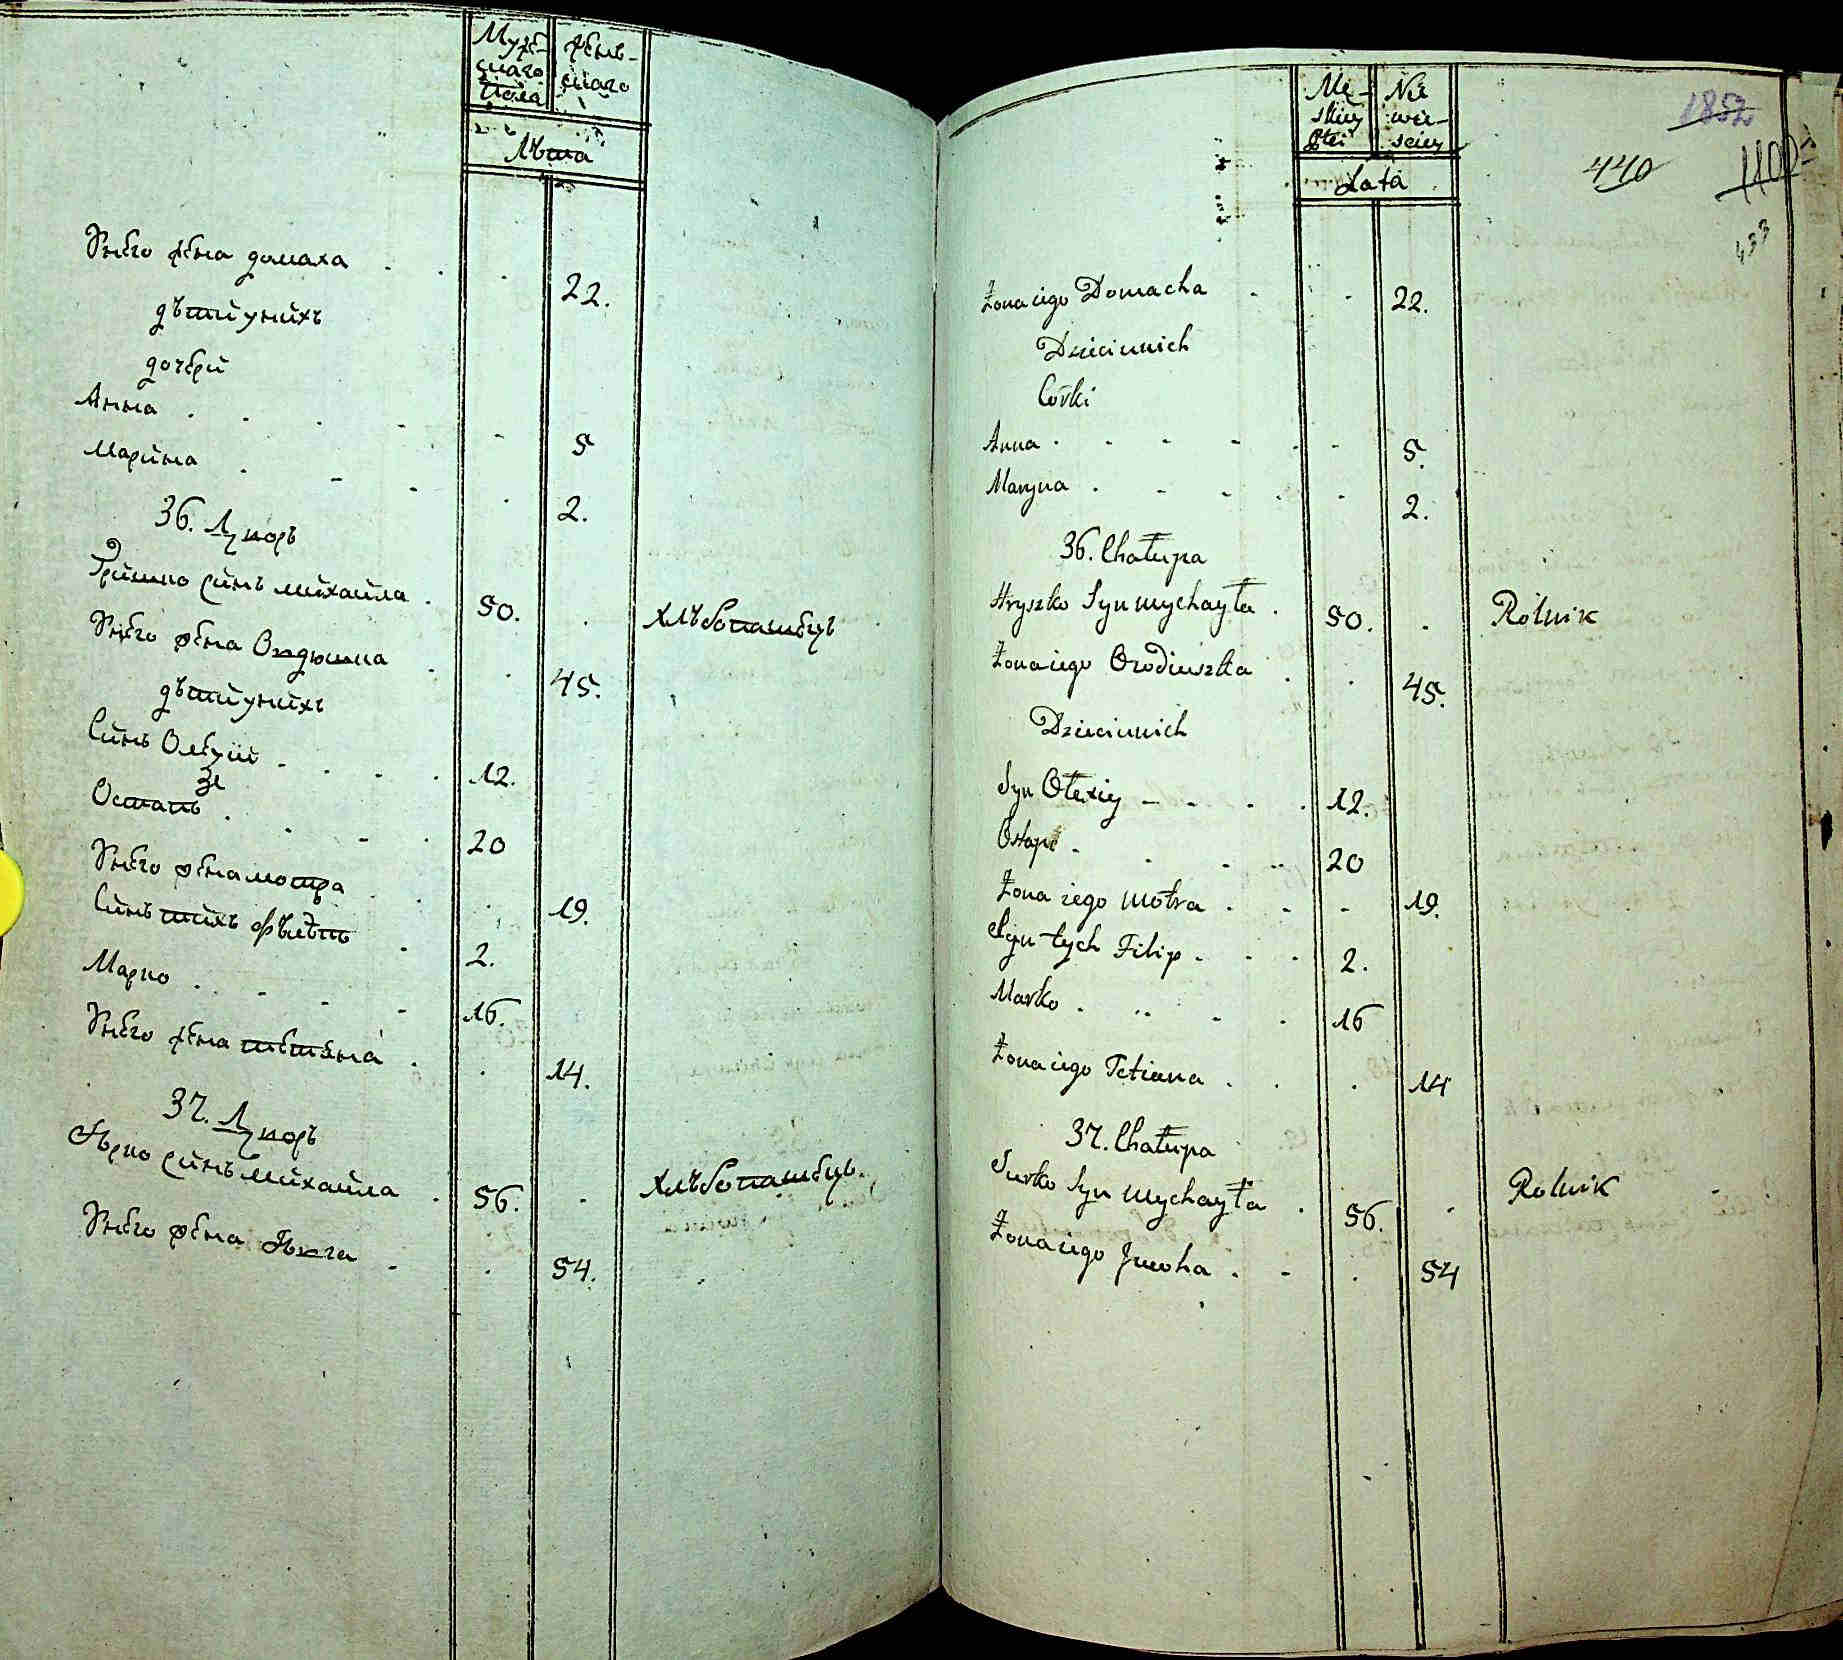 Мужескаго пола
женскаго
Лѣта
У него жена домаха 22.
дѣтй у нихъ
дочерй
Анна 5
Марйна 2.
36. Двор
Грйшко сйнъ мйхайла 50. хлѣбопашецъ
У него жена Ондюшка 45.
дѣтй у нихъ
Сйнъ Олекзій 12.
Остапъ 20
У него жена мотра 19.
Сйнъ тйхъ 2.
Марко 16.
У него жена тетяна 14.
37. Двор
Юрко сйнъ мйхайла 56. хлѣбопашецъ.
У него жена 54.
Mę-
skiey
płci
Nie
wie-
sciey
Lata
1852
440
1100
433
Żona iego Domacha 22.
Dzieci u nich
Córki
Anna 5.
Maryna 2.
36. Chałupa
Hryszko Syn Mychayła 50. Rolnik
Żona iego Orodiuszka 45.
Dzieci u nich
Syn Ołexiy 12.
Ostap 20
Żona iego Motra 19.
Syn tych Filip 2.
Marko 16
Żona iego Tetiana 14
37. Chałupa
Jurko Syn Mychayła 56. Rolnik
Żona iego Jewha 54